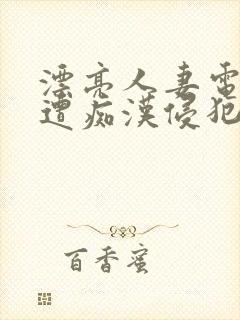 漂亮人妻電
遭痴漢侵犯
百香蜜